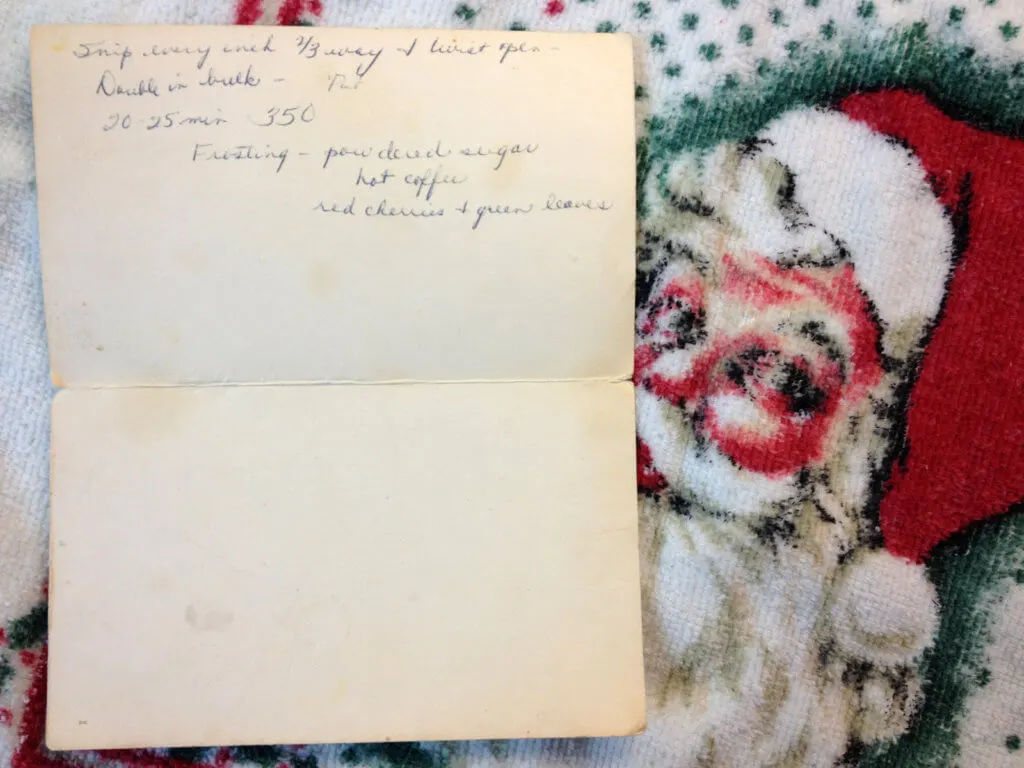 Snip every inch 2/3 way & twist open -
Double in bulk -
20-25 min 350
Frosting - powdered sugar
hot coffee
red cherries & green leaves